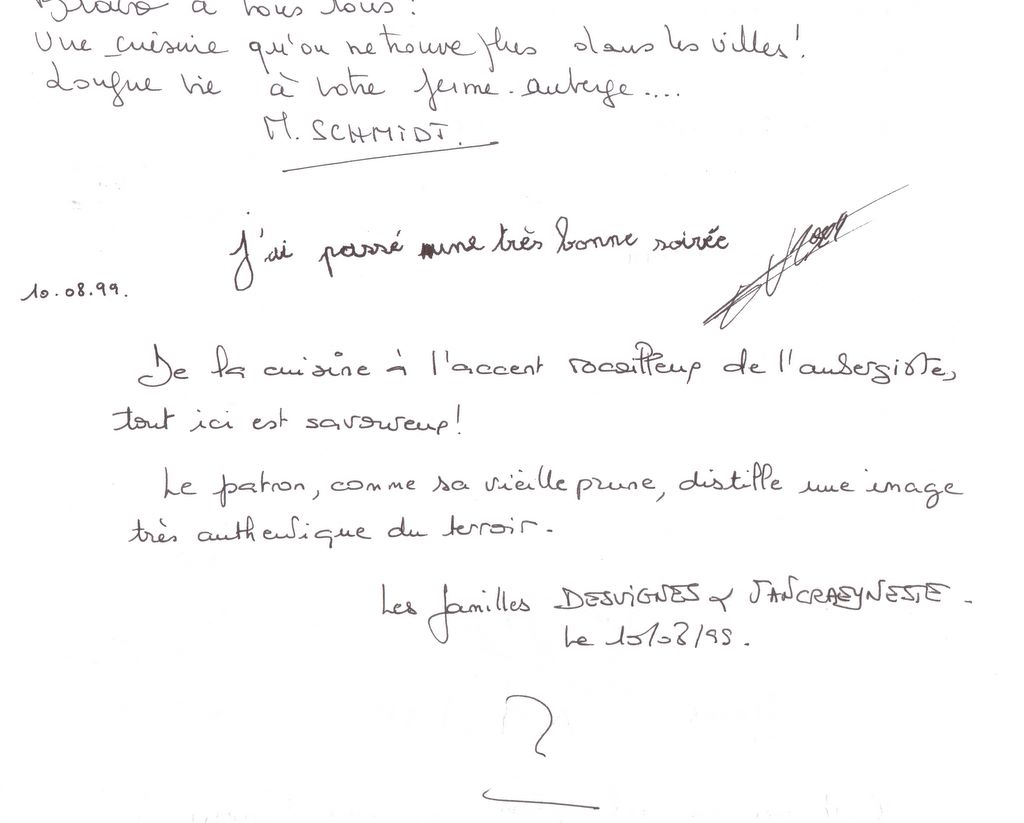 Bravo à vous tous !
Une cuisine qu'on ne trouve plus dans les villes !
Longue vie à votre ferme-auberge....
M. SCHMIDT.
J'ai passé une très bonne soirée
10.08.99.
De la cuisine à l'accent rocailleux de l'aubergiste,
tout ici est savoureux !
Le patron, comme sa vieille prune, distille une image
très authentique du terroir.
Les familles DESVIGNES &
Le 10/08/99.
?